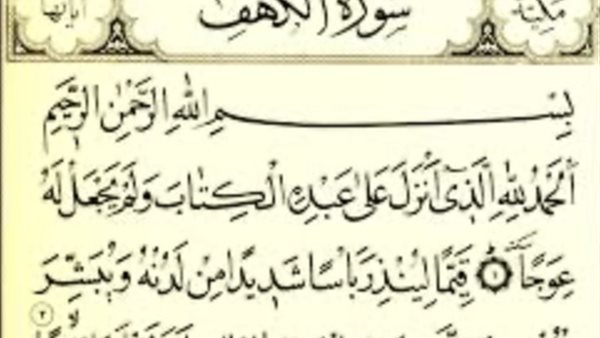 مكية
سورة الكهف
آياتها
بِسْمِ اللّٰهِ الرَّحْمٰنِ الرَّحِيمِ
اَلْحَمْدُ لِلّٰهِ الَّذ۪ٓي اَنْزَلَ عَلٰى عَبْدِهِ الْكِتَابَ وَلَمْ يَجْعَلْ لَهُ
عِوَجًاۜ ﴿١﴾ قَيِّمًا لِيُنْذِرَ بَأْسًا شَد۪يدًا مِنْ لَدُنْهُ وَيُبَشِّرَ
٢